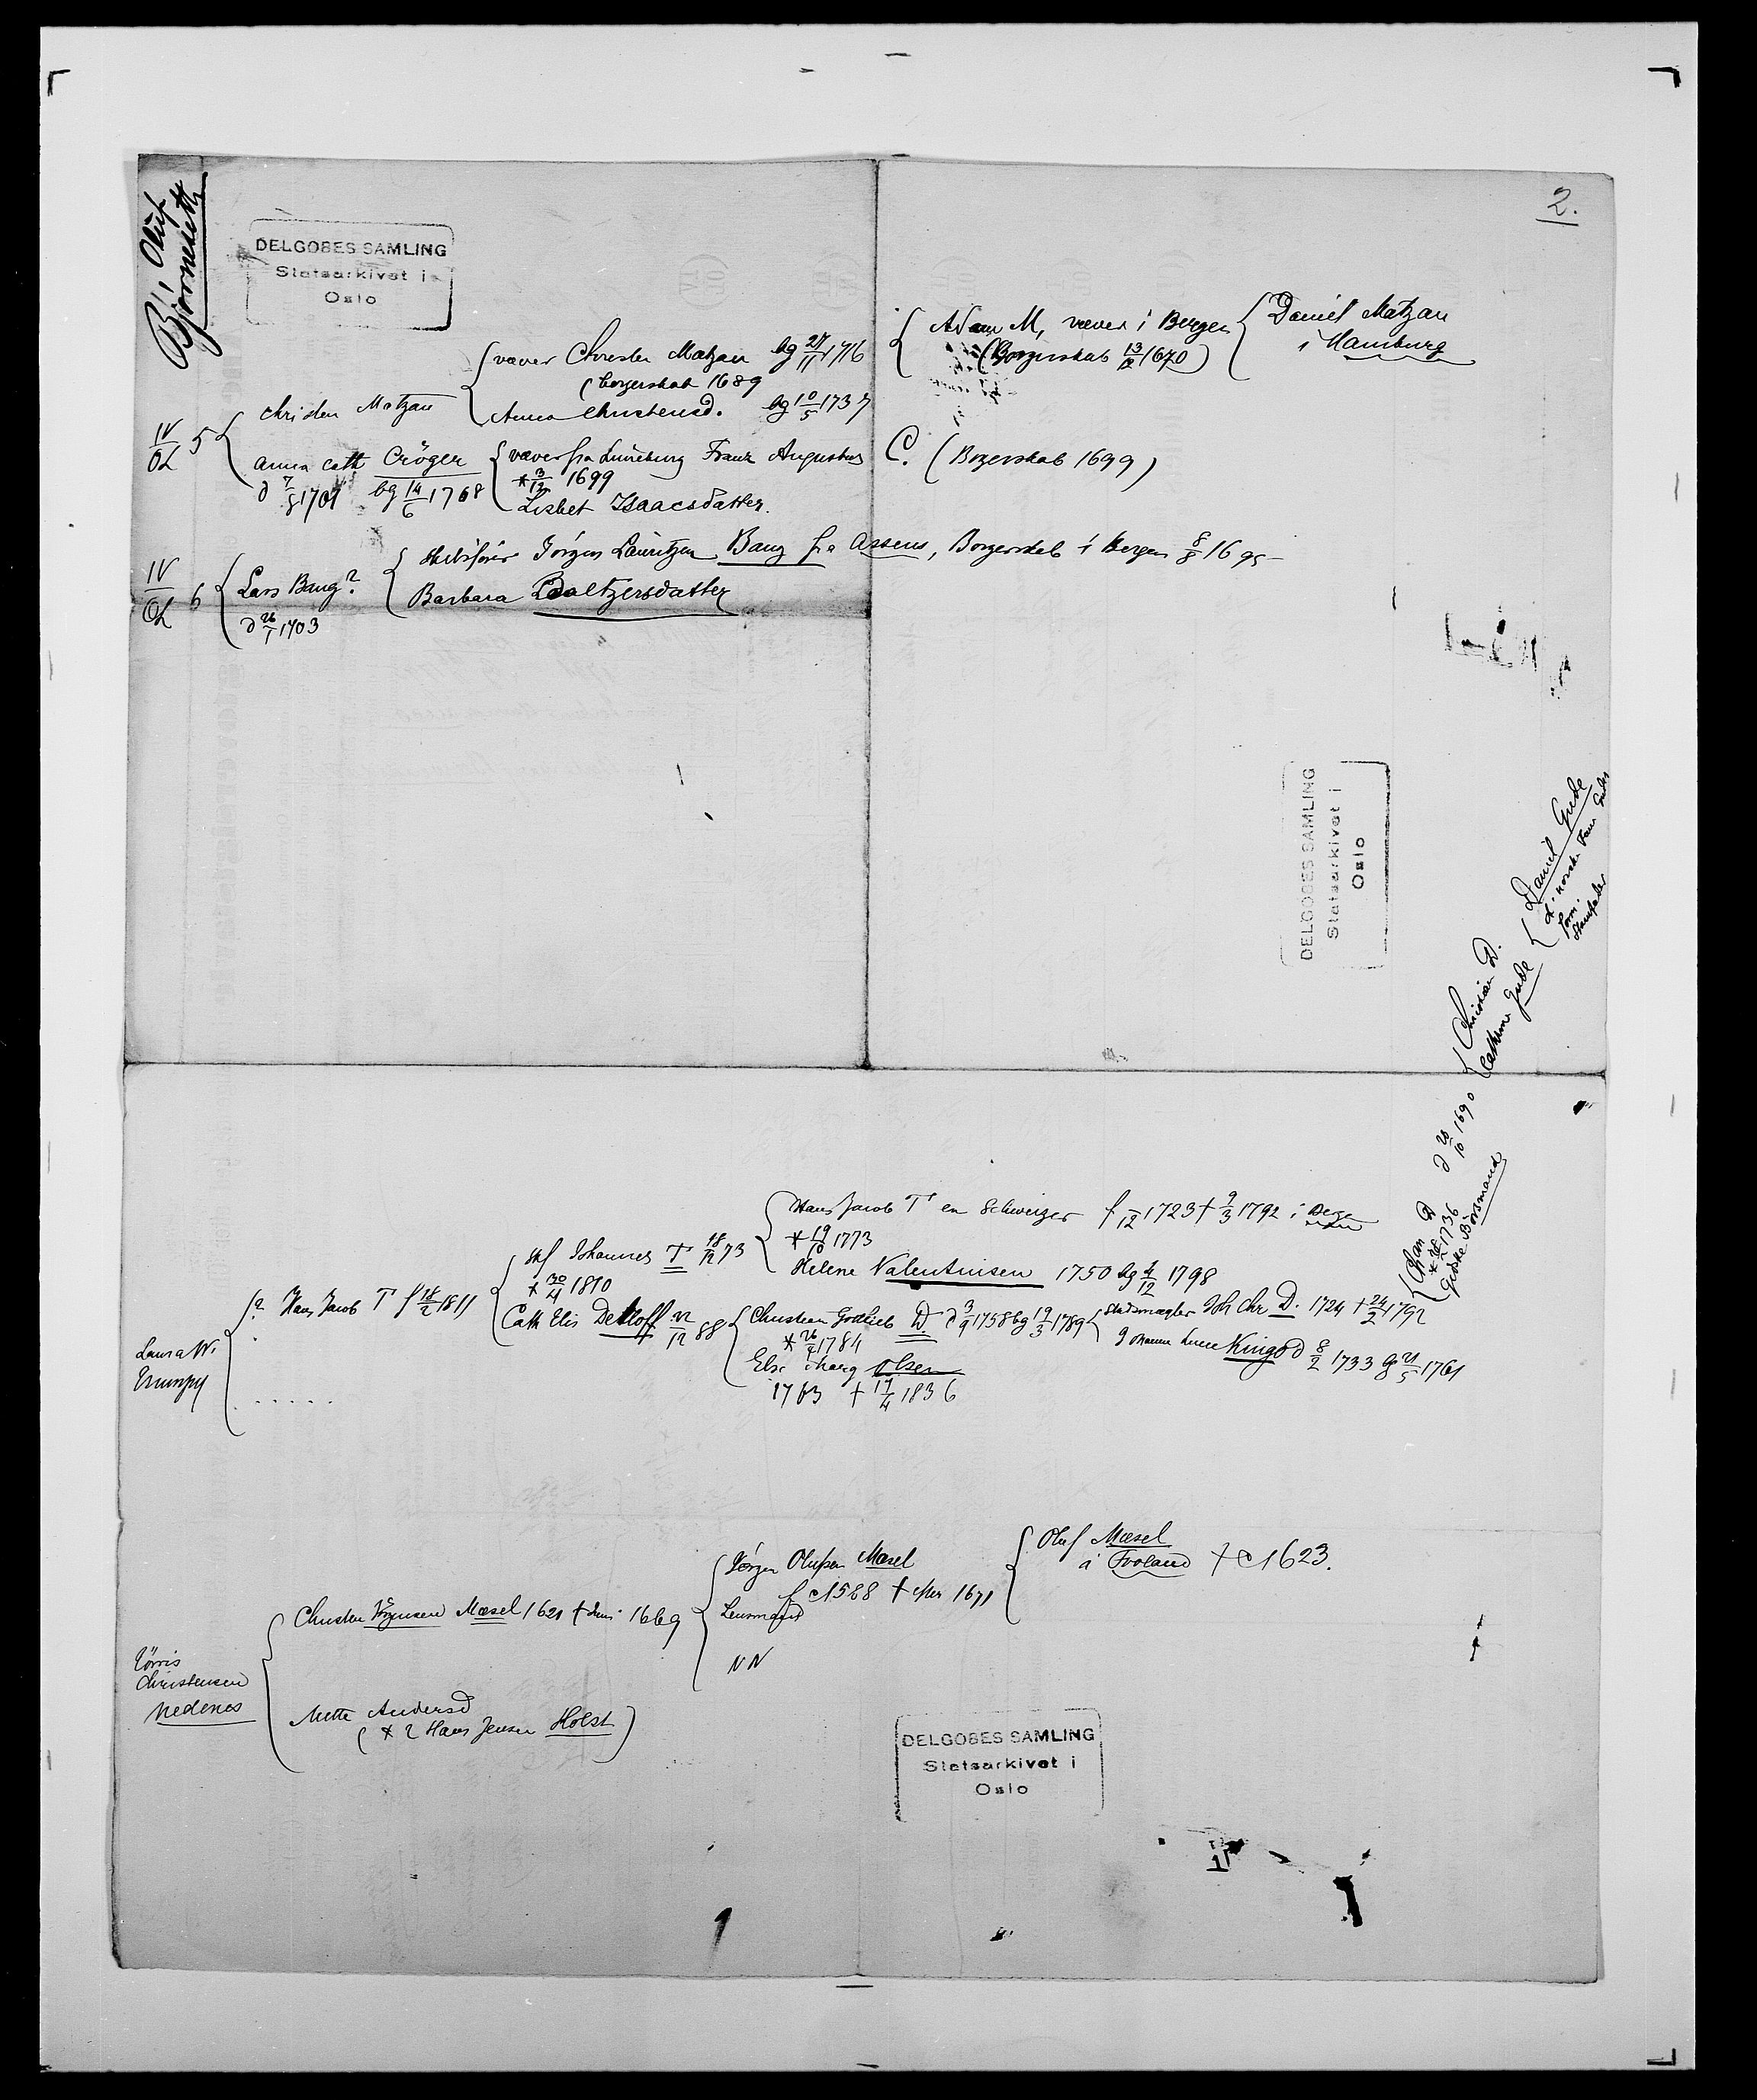 2.
Bj, Oluf
Bjørneseth
DELGOBES SAMLING
Statsarkivet i
Oslo
IV
OL 5
Christen Matzau
væver Christen Matzau bg 27/11 1716
(borgerskab 1689
Anna Christensd. bg 10/5 1737
Adam M, væver i Bergen
(Borgerskab 13/2 1670)
Daniel Matzau
i Hamburg
Anna Cath Cröger
d 7/8 1701 bg 14/6 1768
væver fra Lüneburg Franz Augustus C. (Borgerskab 1699)
* 3/12 1699
Lisbet Isaacsdatter.
IV
OL 6
Lars Bang?
d 26/1 1703
Jörgen Lauritzen Bang fra Assens, Borgerskab i Bergen 8/8 1695
Barbara Baltzersdatter
DELGOBES SAMLING
Statsarkivet i
Oslo
Daniel Gude
d. norske Fam Gudes
Stamfader
Christian D.
Cathrine Gude
Chan D d 28/10 1690
Giöske Börsmand
Laura W.
? Hans Jacob T f 18/2 1811
Johannes T 18/12 73
* 30/4 1810
Cath Elis Detloff 22/12 88
Hans Jacob T en Schweizer f /12 1723 † 9/3 1792 i
* 19/10 1773
Helene Valentinsen 1750 bg 4/12 1798
Christian Gottlieb D. d 3/9 1758 bg 19/3 1789
* 26/4 1784
Else Marg Olsen
1763 † 17/4 1836
Stadsmægler Joh Chr D. 1724 † 24/2 1792
Johanne Lucie Kingo d 8/2 1733 bg 21/5 1761
.....
Törris
Christensen
Nedenes
Christen Jörgensen Mæsel 1621 † Juni 1669
Mette Andersd
(* 2 Hans Jensen Holst)
Jörgen Olufsen Mæsel
f c 1588 † 1671
Lensmand
NN
Oluf Mæsel
i Froland † c 1623.
DELGOBES SAMLING
Statsarkivet i
Oslo